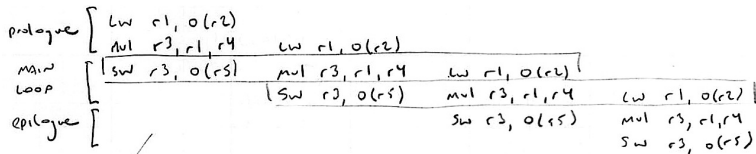 prologue [ Lw r1, 0(r2)
Mul r3, r1, r4 Lw r1, 0(r2)
MAIN LOOP [ Sw r3, 0(r5) Mul r3, r1, r4 Lw r1, 0(r2)
Sw r3, 0(r5) Mul r3, r1, r4 Lw r1, 0(r2)
epilogue [ Sw r3, 0(r5) Mul r3, r1, r4
Sw r3, 0(r5)